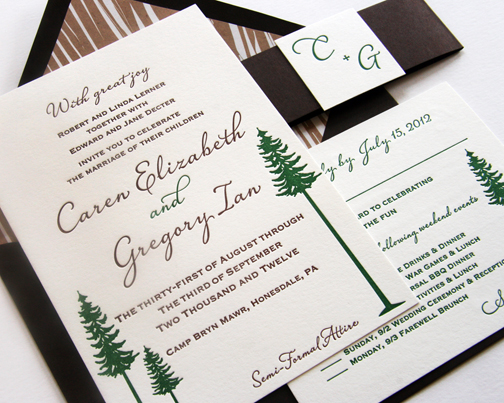 With great joy
Robert and Linda Lerner
together with
Edward and Jane Decter
invite you to celebrate
the marriage of their children
Caren Elizabeth
and
Gregory Ian
The thirty-first of August through
the third of September
Two Thousand and Twelve
Camp Bryn Mawr, Honesdale, PA
Semi-Formal Attire
C + G
by July 15, 2012
to celebrating
the fun
following weekend events
Drinks & Dinner
War Games & Lunch
BBQ Dinner
& Lunch
Sunday, 9/2 Wedding Ceremony &
Monday, 9/3 Farewell Brunch